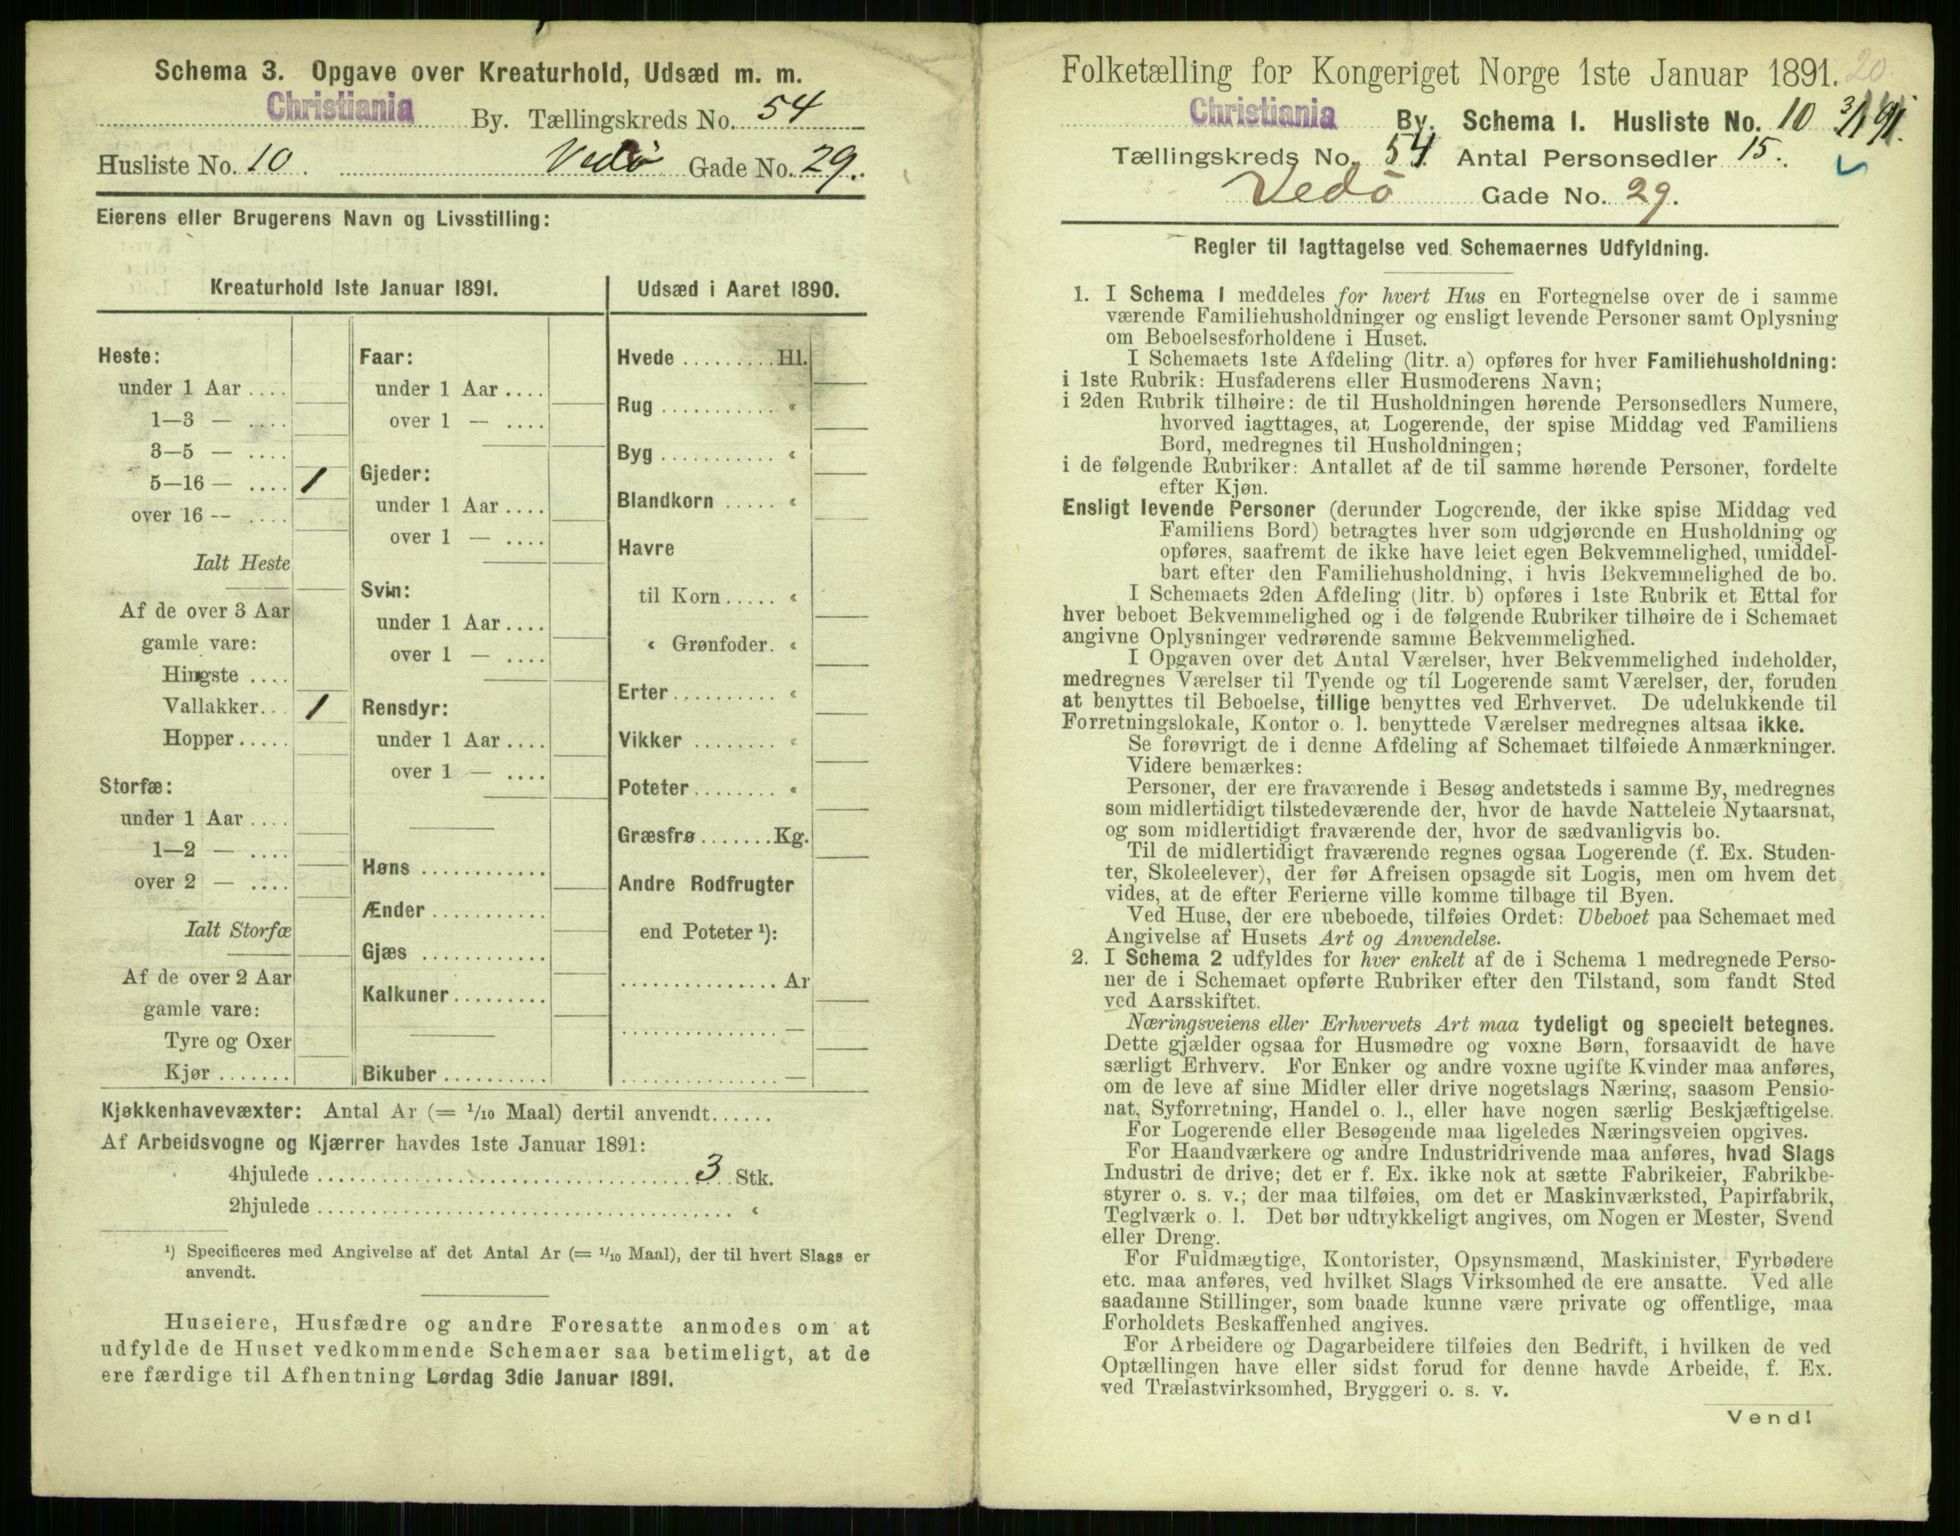 Schema 3. Opgave over Kreaturhold, Udsæd m. m.
Christiania By. Tællingskreds No. 54
Husliste No. 10 Vedø Gade No. 29.
Eierens eller Brugerens Navn og Livsstilling:
Kreaturhold 1ste Januar 1891.
Heste:
under 1 Aar ....
1—3 — ....
3—5 — ....
5—16 — .... 1
over 16 -- ....
Ialt Heste
Af de over 3 Aar
gamle vare:
Hingste ....
Vallakker.. 1
Hopper.....
Storfæ:
under 1 Aar ....
1—2 — ....
over 2 — ....
Ialt Storfæ
Af de over 2 Aar
gamle vare:
Tyre og Oxer
Kjør .......
Faar:
under 1 Aar ....
over 1 — ....
Gjeder:
under 1 Aar ....
over 1 — ....
Svin:
under 1 Aar ....
over 1 — ....
Rensdyr:
under 1 Aar ....
over 1 — ....
Høns ............
Ænder ..........
Gjæs ............
Kalkuner.........
Bikuber ..........
Udsæd i Aaret 1890.
Hvede ......... Hl.
Rug ........... «
Byg ........... «
Blandkorn ..... «
Havre
til Korn ..... «
« Grønfoder. «
Erter.......... «
Vikker ........ «
Poteter........ «
Græsfrø ....... Kg.
Andre Rodfrugter
end Poteter ¹):
............... Ar
............... —
............... —
Kjøkkenhavevæxter: Antal Ar (= 1/10 Maal) dertil anvendt......
Af Arbeidsvogne og Kjærrer havdes 1ste Januar 1891:
4hjulede .................................... 3 Stk.
2hjulede .................................... «
¹) Specificeres med Angivelse af det Antal Ar (= 1/10 Maal), der til hvert Slags er
anvendt.
Huseiere, Husfædre og andre Foresatte anmodes om at
udfylde de Huset vedkommende Schemaer saa betimeligt, at de
ere færdige til Afhentning Lørdag 3die Januar 1891.
Folketælling for Kongeriget Norge 1ste Januar 1891. 20
Christiania By. Schema I. Husliste No. 10
Tællingskreds No. 54 Antal Personsedler 15.
Vedø Gade No. 29.
Regler til Iagttagelse ved Schemaernes Udfyldning.
1. I Schema 1 meddeles for hvert Hus en Fortegnelse over de i samme
værende Familiehusholdninger og ensligt levende Personer samt Oplysning
om Beboelsesforholdene i Huset.
I Schemaets 1ste Afdeling (litr. a) opføres for hver Familiehusholdning:
i 1ste Rubrik: Husfaderens eller Husmoderens Navn;
i 2den Rubrik tilhøire: de til Husholdningen hørende Personsedlers Numere,
hvorved iagttages, at Logerende, der spise Middag ved Familiens
Bord, medregnes til Husholdningen;
i de følgende Rubriker: Antallet af de til samme hørende Personer, fordelte
efter Kjøn.
Ensligt levende Personer (derunder Logerende, der ikke spise Middag ved
Familiens Bord) betragtes hver som udgjørende en Husholdning og
opføres, saafremt de ikke have leiet egen Bekvemmelighed, umiddel-
bart efter den Familiehusholdning, i hvis Bekvemmelighed de bo.
I Schemaets 2den Afdeling (litr. b) opføres i 1ste Rubrik et Ettal for
hver beboet Bekvemmelighed og i de følgende Rubriker tilhøire de i Schemaet
angivne Oplysninger vedrørende samme Bekvemmelighed.
I Opgaven over det Antal Værelser, hver Bekvemmelighed indeholder,
medregnes Værelser til Tyende og til Logerende samt Værelser, der, foruden
at benyttes til Beboelse, tillige benyttes ved Erhvervet. De udelukkende til
Forretningslokale, Kontor o. l. benyttede Værelser medregnes altsaa ikke.
Se forøvrigt de i denne Afdeling af Schemaet tilføiede Anmærkninger.
Videre bemærkes:
Personer, der ere fraværende i Besøg andetsteds i samme By, medregnes
som midlertidigt tilstedeværende der, hvor de havde Natteleie Nytaarsnat,
og som midlertidigt fraværende der, hvor de sædvanligvis bo.
Til de midlertidigt fraværende regnes ogsaa Logerende (f. Ex. Studen-
ter, Skoleelever), der før Afreisen opsagde sit Logis, men om hvem det
vides, at de efter Ferierne ville komme tilbage til Byen.
Ved Huse, der ere ubeboede, tilføies Ordet: Ubeboet paa Schemaet med
Angivelse af Husets Art og Anvendelse.
2. I Schema 2 udfyldes for hver enkelt af de i Schema 1 medregnede Perso-
ner de i Schemaet opførte Rubriker efter den Tilstand, som fandt Sted
ved Aarsskiftet.
Næringsveiens eller Erhvervets Art maa tydeligt og specielt betegnes.
Dette gjælder ogsaa for Husmødre og voxne Børn, forsaavidt de have
særligt Erhverv. For Enker og andre voxne ugifte Kvinder maa anføres,
om de leve af sine Midler eller drive nogetslags Næring, saasom Pensio-
nat, Syforretning, Handel o. l., eller have nogen særlig Beskjæftigelse.
For Logerende eller Besøgende maa ligeledes Næringsveien opgives.
For Haandværkere og andre Industridrivende maa anføres, hvad Slags
Industri de drive; det er f. Ex. ikke nok at sætte Fabrikeier, Fabrikbe-
styrer o. s. v.; der maa tilføies, om det er Maskinværksted, Papirfabrik,
Teglværk o. l. Det bør udtrykkeligt angives, om Nogen er Mester, Svend
eller Dreng.
For Fuldmægtige, Kontorister, Opsynsmænd, Maskinister, Fyrbødere
etc. maa anføres, ved hvilket Slags Virksomhed de ere ansatte. Ved alle
saadanne Stillinger, som baade kunne være private og offentlige, maa
Forholdets Beskaffenhed angives.
For Arbeidere og Dagarbeidere tilføies den Bedrift, i hvilken de ved
Optællingen have eller sidst forud for denne havde Arbeide, f. Ex.
ved Trælastvirksomhed, Bryggeri o. s. v.
Vend!